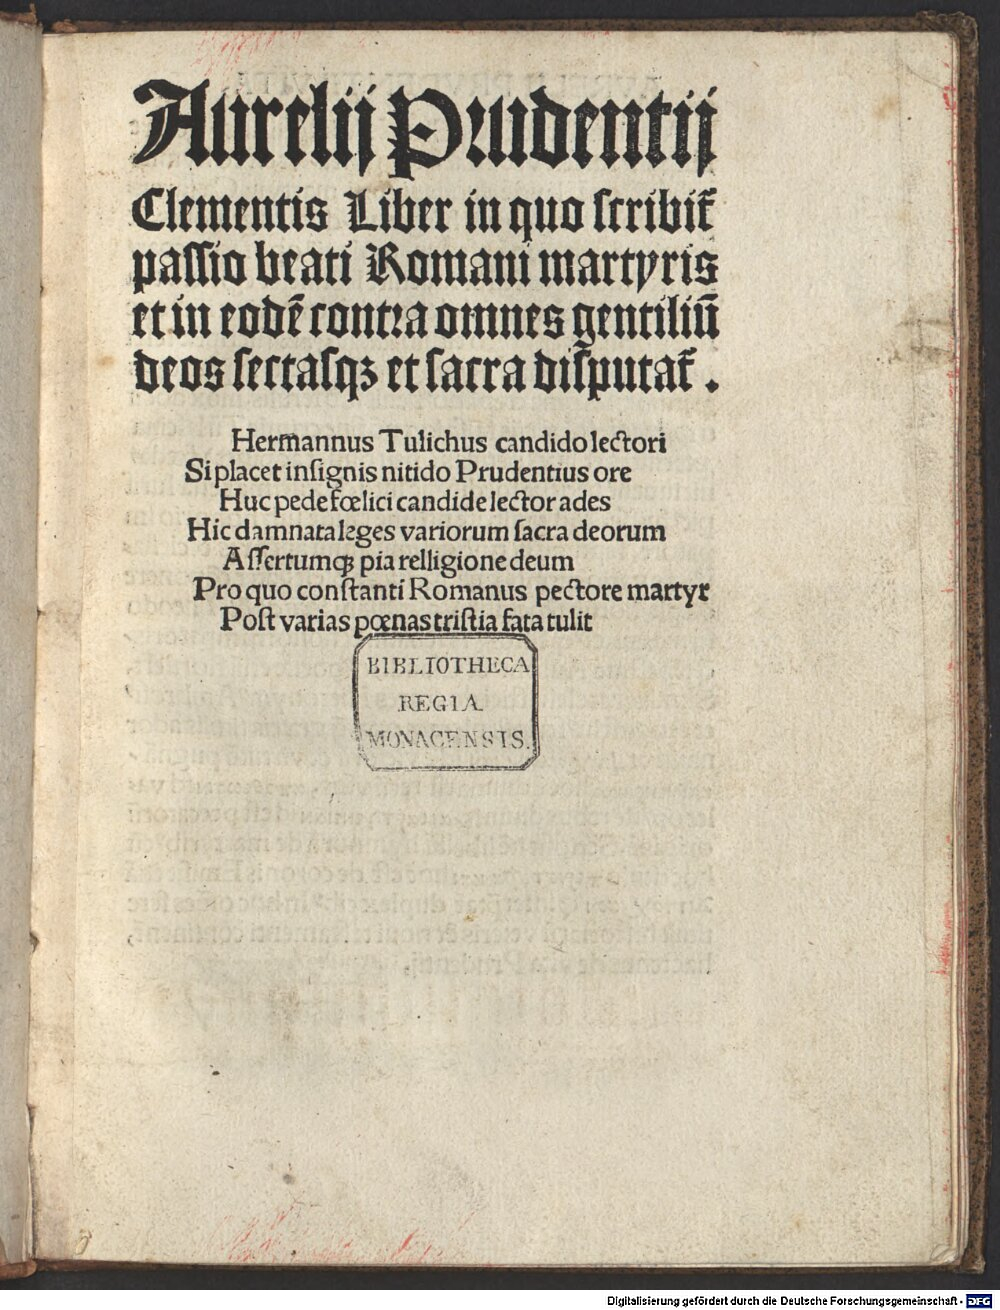 Aurelij Prudentij
Clementis Liber in quo scribit̄
passio beati Romani martyris
et in eodē contra omnes gentiliū
deos sectasqꝫ et sacra disputat̄.
Hermannus Tulichus candido lectori
Si placet insignis nitido Prudentius ore
Huc pede fœlici candide lector ades
Hic damnata leges variorum sacra deorum
Assertumqꝫ pia relligione deum
Pro quo constanti Romanus pectore martyr
Post varias pœnas tristia fata tulit
BIBLIOTHECA
REGIA
MONACENSIS.
Digitalisierung gefördert durch die Deutsche Forschungsgemeinschaft - DFG